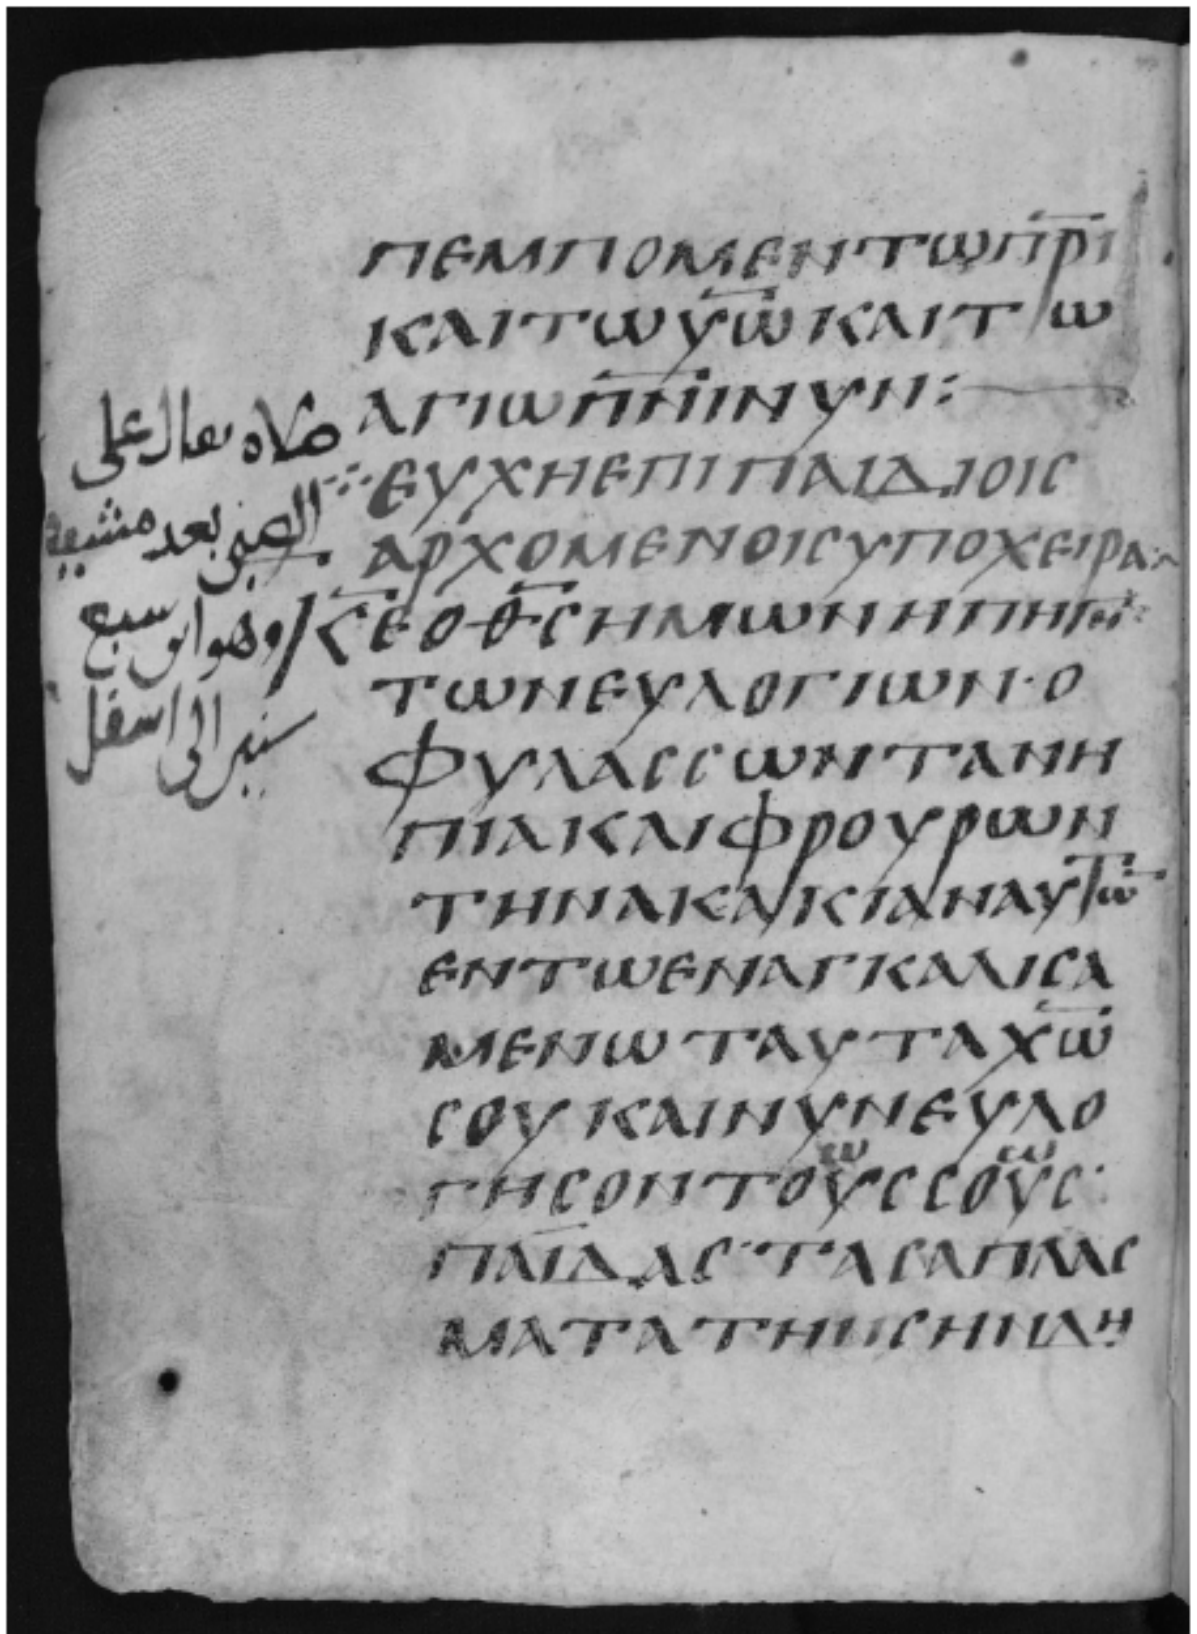 ΠΕΜΠΟΜΕΝΤΩΠ̅Ρ̅Ι̅
ΚΑΙΤΩΥ̅Ω̅ΚΑΙΤΩ
ΑΓΙΩΠ̅Ν̅Ι̅ΝΥΝ:
ΕΥΧΗΕΠΙΠΑΙΔΙΟΙΣ
ΑΡΧΟΜΕΝΟΙΣΥΠΟΧΕΙΡΑ
ΚΕΟΘ̅Σ̅ΗΜΩΝΗΠΗΓΗ
ΤΩΝΕΥΛΟΓΙΩΝ·Ο
ΦΥΛΑΣΣΩΝΤΑΝΗ
ΠΙΑΚΑΙΦΡΟΥΡΩΝ
ΤΗΝΑΚΑΚΙΑΝΑΥΤΩ
ΕΝΤΩΕΝΑΓΚΑΛΙΣΑ
ΜΕΝΩΤΑΥΤΑΧ̅Ω̅
ΣΟΥΚΑΙΝΥΝΕΥΛΟ
ΓΗΣΟΝΤΟΥΣΣΟΥΣ·
ΠΑΙΔΑΣ·ΤΑΣΑΠΛΑΣ
ΜΑΤΑΤΗ
صلاه يقال على
الصبي بعد
وهو ابن سبع
سنين الى اسفل